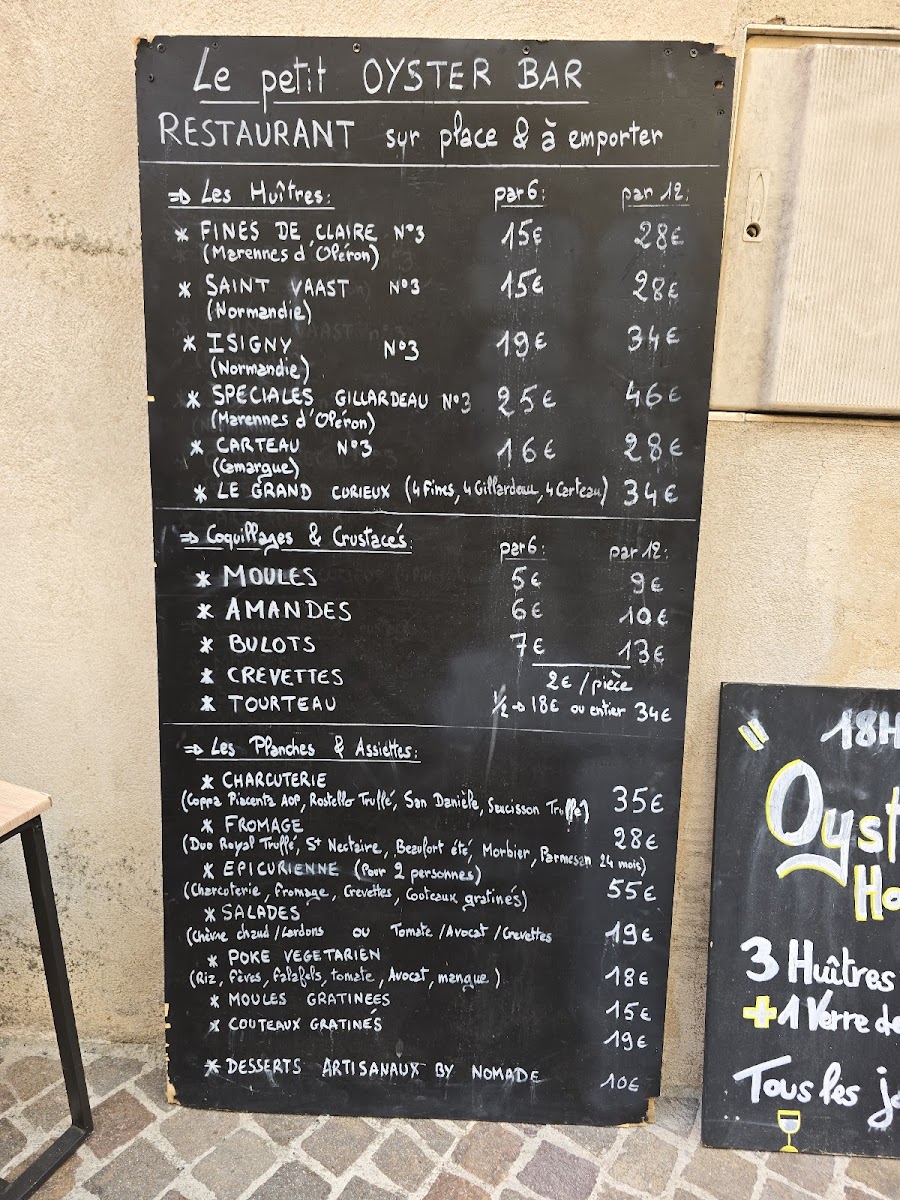 Le petit OYSTER BAR
RESTAURANT sur place & à emporter
⇒ Les Huîtres: par 6: par 12:
* FINES DE CLAIRE N°3 15€ 28€
(Marennes d'Oléron)
* SAINT VAAST N°3 15€ 28€
(Normandie)
* ISIGNY N°3 19€ 34€
(Normandie)
* SPECIALES GILLARDEAU N°3 25€ 46€
(Marennes d'Oléron)
* CARTEAU N°3 16€ 28€
(Camargue)
* LE GRAND CURIEUX (4 Fines, 4 Gillardeau, 4 Carteau) 34€
⇒ Coquillages & Crustacés: par 6: par 12:
* MOULES 5€ 9€
* AMANDES 6€ 10€
* BULOTS 7€ 13€
* CREVETTES 2€/pièce
* TOURTEAU 1/2 → 18€ ou entier 34€
⇒ Les Planches & Assiettes:
* CHARCUTERIE
(Coppa Piacenta AOP, Rostello Truffé, San Danièle, Saucisson Truffé) 35€
* FROMAGE 28€
(Duo Royal Truffé, St Nectaire, Beaufort été, Morbier, Parmesan 24 mois)
* EPICURIENNE (Pour 2 personnes)
(Charcuterie, Fromage, Crevettes, Couteaux gratinés) 55€
* SALADES
(Chèvre chaud/Lardons ou Tomate/Avocat/Crevettes 19€
* POKE VEGETARIEN
(Riz, Fèves, Falafels, tomate, Avocat, mangue) 18€
* MOULES GRATINEES 15€
* COUTEAUX GRATINÉS 19€
* DESSERTS ARTISANAUX BY NOMADE 10€
18H
Oyst
Ho
3 Huîtres
+ 1 Verre de
Tous les j